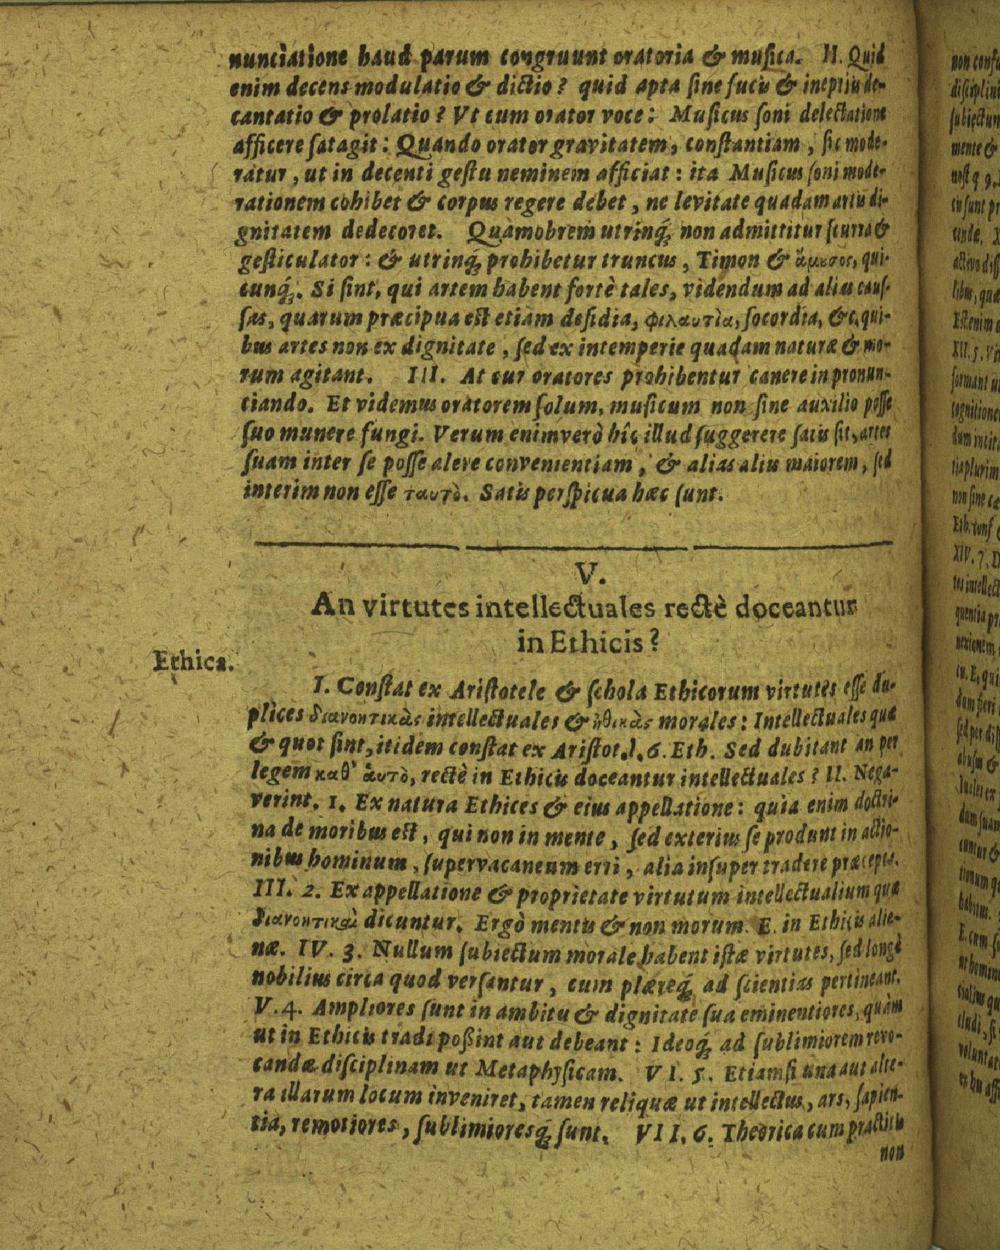 nunciatione haud parum congruunt oratoria & musica. II. Quid
enim decens modulatio & dictio? quid apta sine fucis & ineptiis de-
cantatio & prolatio? Vt cum orator voce: Musicus soni delectatione
afficere satagit: Quando orator gravitatem, constantiam, sic mode-
ratur, ut in decenti gestu neminem afficiat: ita Musicus soni mode-
rationem cohibet & corpus regere debet, ne levitate quadam artis di-
gnitatem dedecoret. Quamobrem utrinq́; non admittitur scurra &
gesticulator: & utrinq́; prohibetur truncus, Timon & ἄμουσος, qui-
cunq́;. Si sint, qui artem habent fortè tales, videndum ad alias caus-
sas, quarum præcipua est etiam desidia, φιλαυτία, socordia, &c, qui-
bus artes non ex dignitate, sed ex intemperie quadam naturæ & mo-
rum agitant. III. At cur oratores prohibentur canere in pronun-
tiando. Et videmus oratorem solum, musicum non sine auxilio posse
suo munere fungi. Verum enimverò hîc illud suggerere satis sit, artes
suam inter se posse alere convenientiam, & alias aliis maiorem, sed
interim non esse ταυτὸ. Satis perspicua hæc sunt.
V.
An virtutes intellectuales rectè doceantur
in Ethicis?
Ethica.
I. Constat ex Aristotele & schola Ethicorum virtutes esse du-
plices διανοητικὰς intellectuales & ἠθικὰς morales: Intellectuales quæ
& quot sint, itidem constat ex Aristot. l. 6. Eth. Sed dubitant an per
legem καθ' ἁυτὸ, rectè in Ethicis doceantur intellectuales? II. Nega-
verint. 1. Ex natura Ethices & eius appellatione: quia enim doctri-
na de moribus est, qui non in mente, sed exterius se produnt in actio-
nibus hominum, supervacaneum erit, alia insuper tradere præcepta.
III. 2. Ex appellatione & proprietate virtutum intellectualium quæ
διανοητικαὶ dicuntur. Ergò mentis & non morum. E. in Ethicis alie-
næ. IV. 3. Nullum subiectum morale habent istæ virtutes, sed longè
nobilius circa quod versantur, cum plæreq́; ad scientias pertineant.
V. 4. Ampliores sunt in ambitu & dignitate sua eminentiores, quàm
ut in Ethicis tradi possint aut debeant: Ideoq́; ad sublimiorem revo-
candæ disciplinam ut Metaphysicam. VI. 5. Etiamsi una aut alte-
ra illarum locum inveniret, tamen reliquæ ut intellectus, ars, sapien-
tia, remotiores, sublimioresq́; sunt. VII. 6. Theorica cum practicis
non